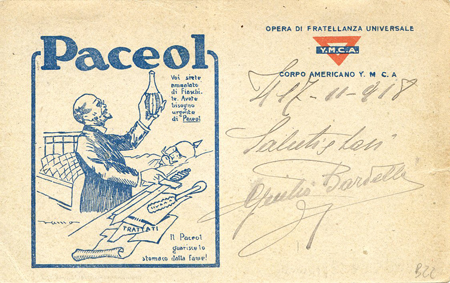 Paceol
Voi siete
ammalato
di Fiaschi-
te. Avete
bisogno
urgente
di Paceol
TRATTATI
Il Paceol
guarisce lo
stomaco dalla fame!
OPERA DI FRATELLANZA UNIVERSALE
Y.M.C.A.
CORPO AMERICANO Y. M. C. A
17-11-918
Saluti
Bardelli